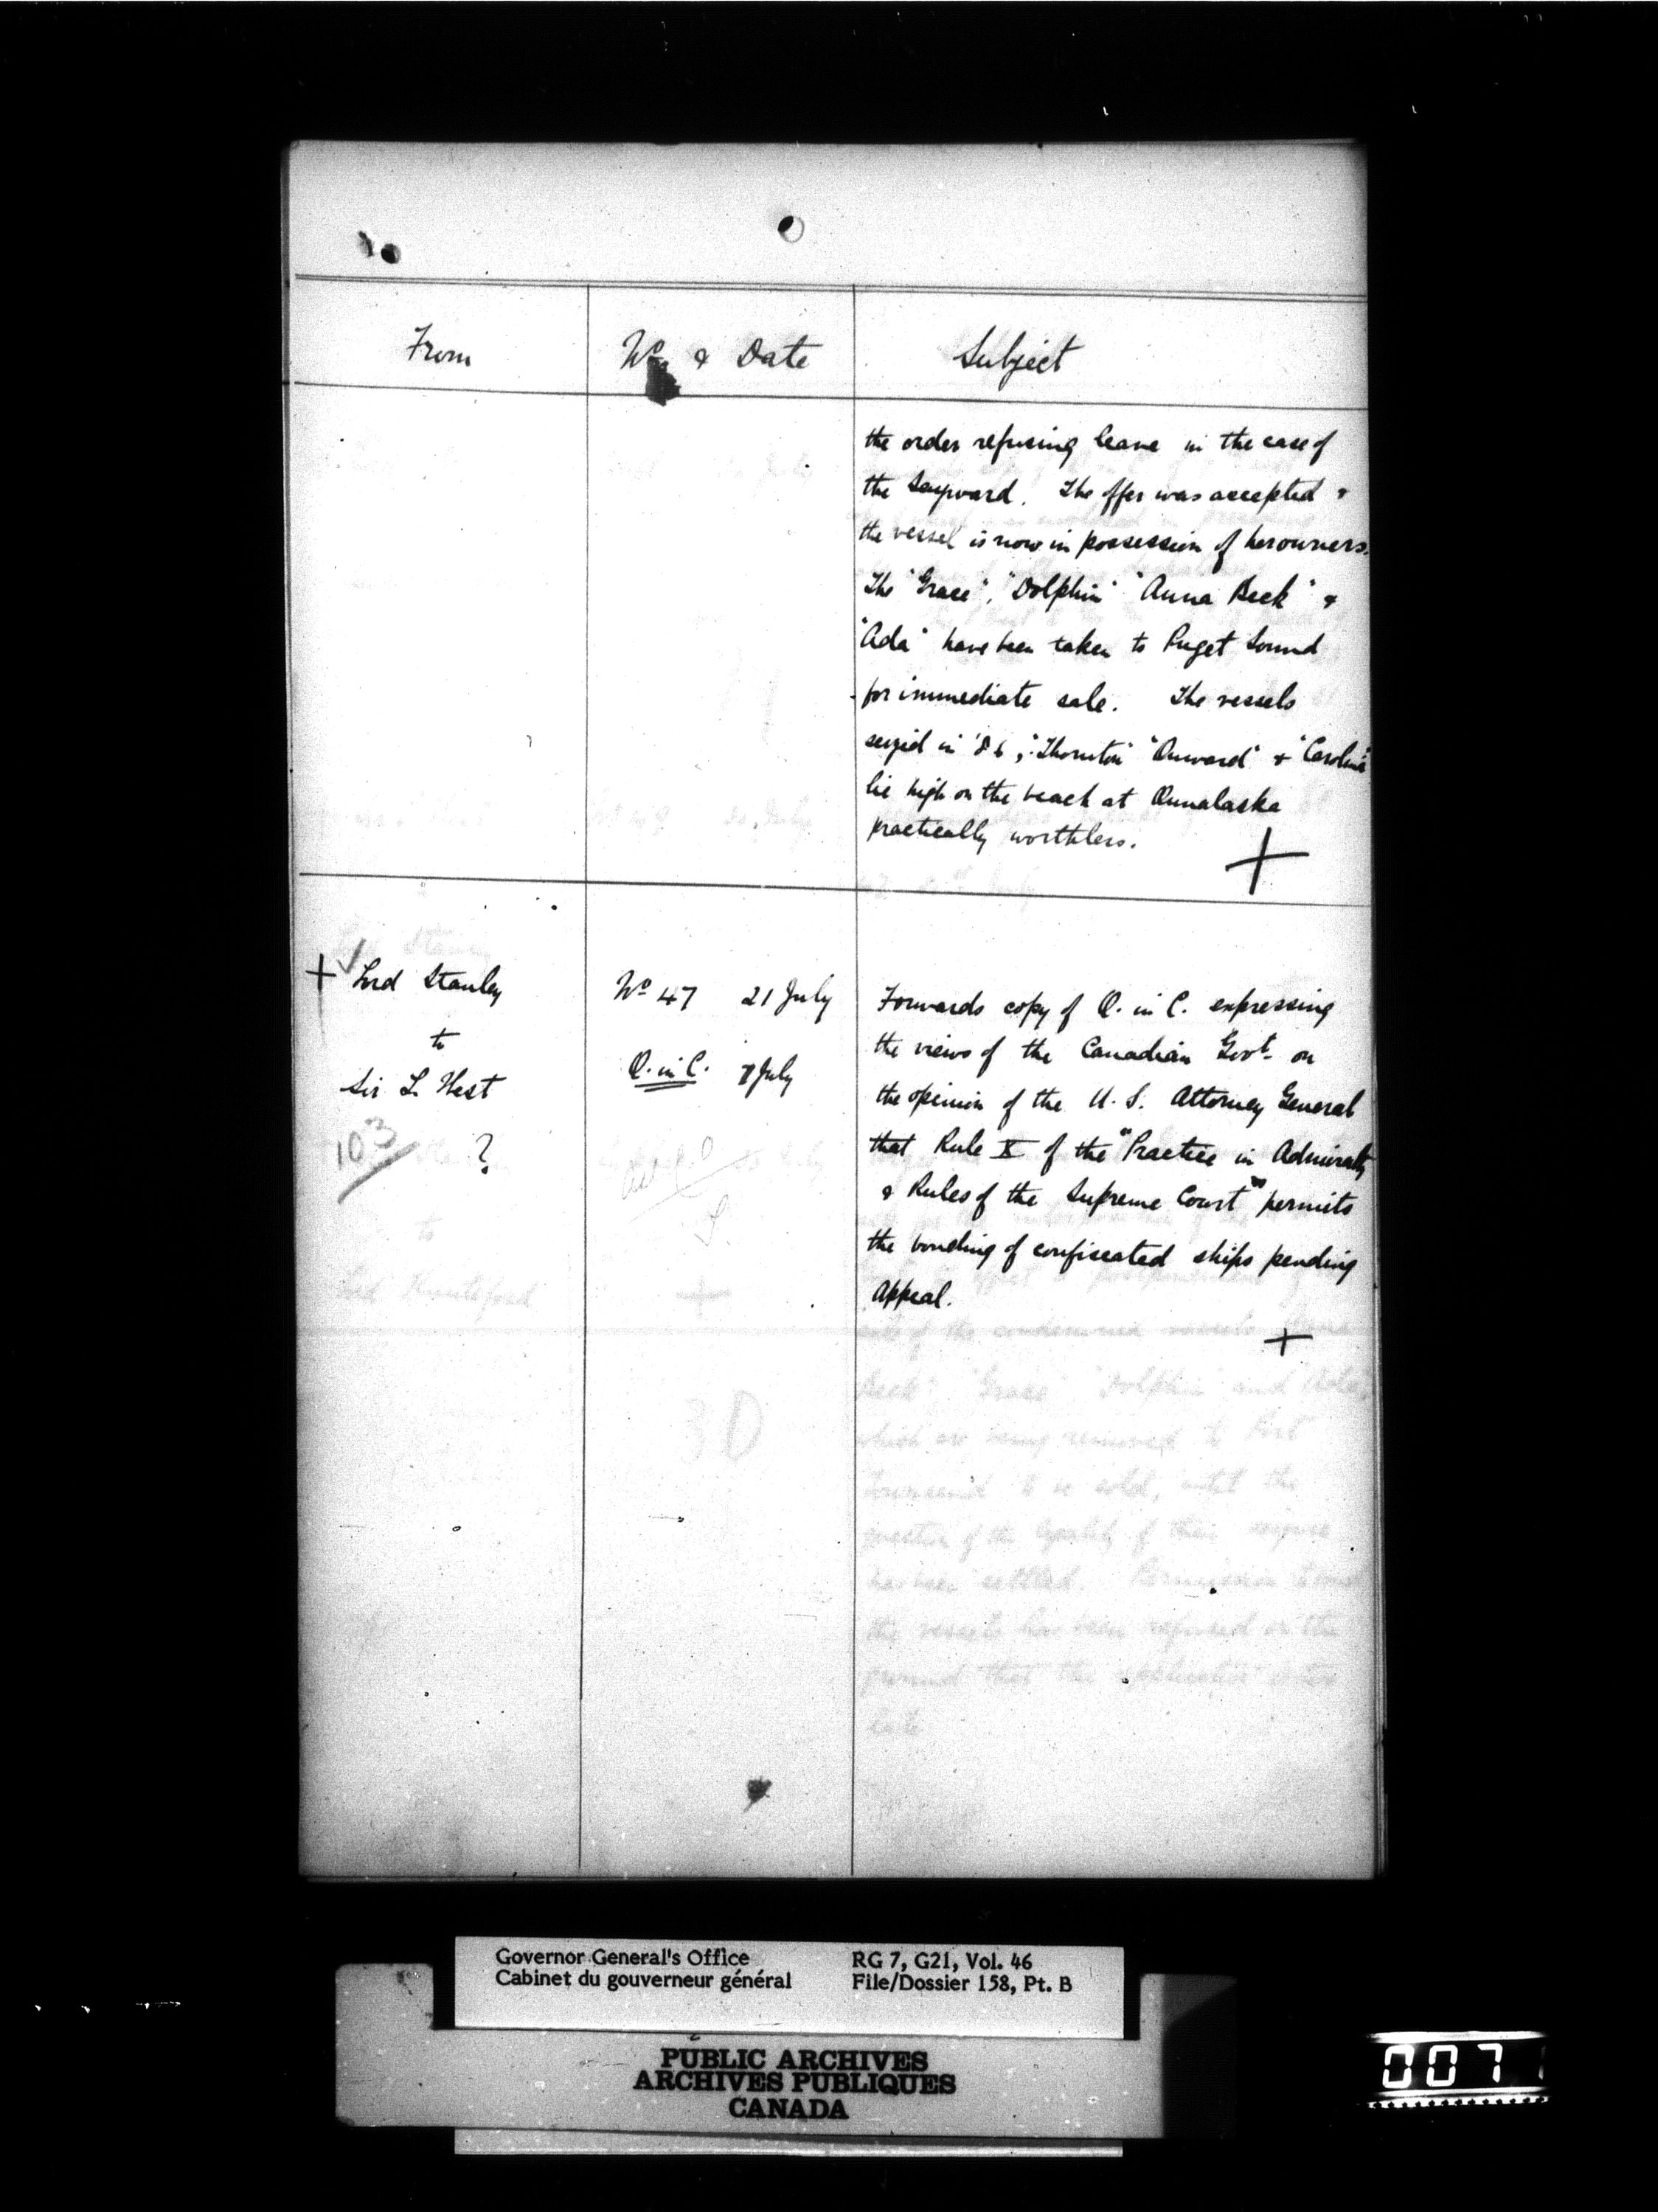 From
No & Date
Subject
the order refusing leave in the case of
the Sayward. The offer was accepted &
the vessel is now in possession of her owners.
The "Grace", "Dolphin" "Anna Beck" &
"Ada" have been taken to Puget Sound
for immediate sale. The vessels
seized in '86, "Thornton" "Onward" & "Carolina"
lie high on the beach at Ounalaska
practically worthless.
+
+ ✓ Lord Stanley
to
Sir L. West
103 ?
No 47 21 July
O. in C. 7 July
Forwards copy of O. in C. expressing
the views of the Canadian Govt. on
the opinion of the U.S. Attorney General
that Rule X of the "Practice in Admiralty
& Rules of the Supreme Court" permits
the bonding of confiscated ships pending
Appeal.
+
Governor General's Office
Cabinet du gouverneur général
RG 7, G21, Vol. 46
File/Dossier 158, Pt. B
PUBLIC ARCHIVES
ARCHIVES PUBLIQUES
CANADA
007